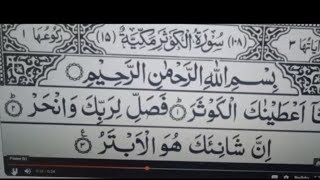 اٰيَاتُهَا ٣ (١٠٨) سُوْرَةُ الْكَوْثَرِ مَكِّيَّةٌ (١٥) رُكُوْعُهَا ١
بِسْمِ اللهِ الرَّحْمٰنِ الرَّحِيْمِ
نَّا اَعْطَيْنٰكَ الْكَوْثَرَ ۝١ فَصَلِّ لِرَبِّكَ وَانْحَرْ ۝٢
اِنَّ شَانِئَكَ هُوَ الْاَبْتَرُ ۝٣
Pause (k)